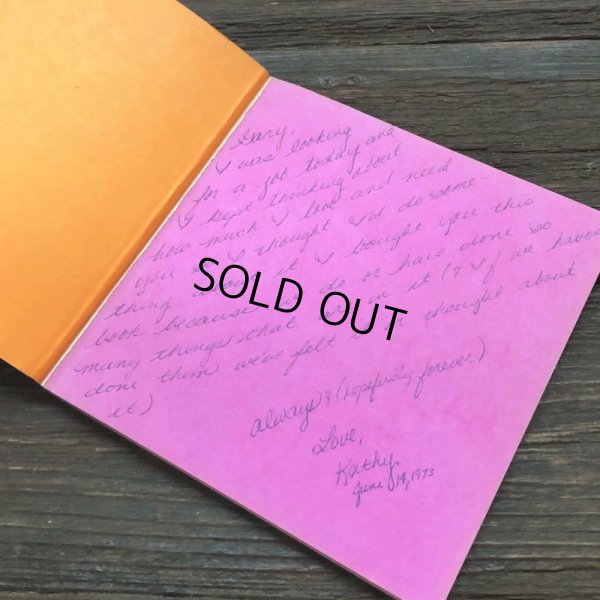 Gary,
I was looking
for a job today and
I kept thinking about
how much I love and need
you & I thought I'd do some-
thing about it I bought you this
book because we do or have done so
many things that are in it (& if we haven't
done them we've felt it or thought about
it)
always & (hopefully forever)
Love,
Kathy
June 14, 1973
SOLD OUT